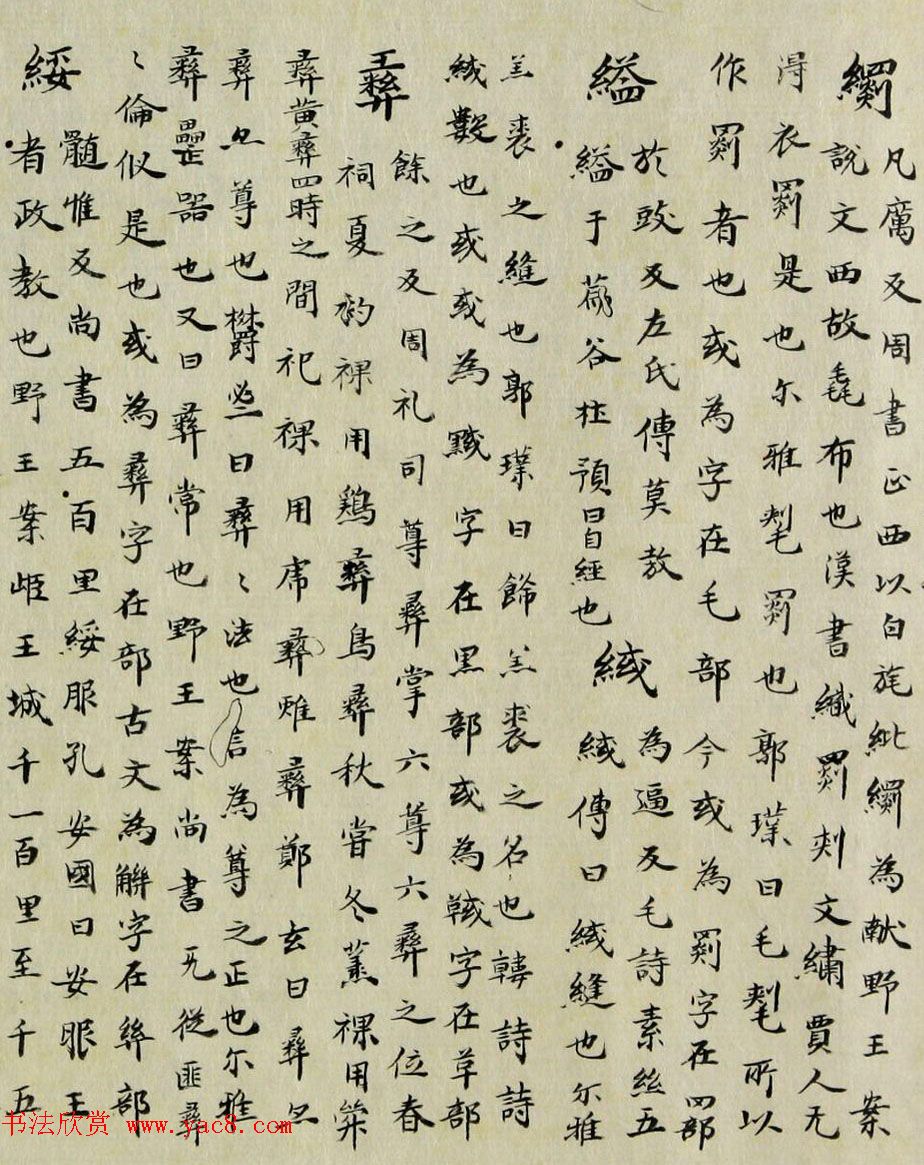 𦇧
凡厲反周書正西以白旄紕𦇧為献野王案
説文西故毳布也漢書織罽刾文繡賈人无
淂衣罽是也尔雅氂罽也郭璞曰毛氂所以
作罽者也或為字在毛部今或為罽字在罒部
縊
於豉反左氏傳莫敖
縊于蓏谷杜預曰自經也
緎
為逼反毛詩素絲五
緎傳曰緎縫也尔雅
羔裘之縫也郭璞曰飾羔裘之名也韓詩詩
緎數也或或為黬字在黒部或為字在草部
彝
餘之反周礼司尊彝掌六尊六彝之位春
祠夏礿祼用鶏彝鳥彝秋甞冬蒸祼用斚
彝黄彝四時之間祀祼用席彝蜼彝鄭玄曰彝
彝尊也曰彝〻法也言為尊之正也尔雅
彝罍器也又曰彝常也野王案尚書无從匪彝
〻倫攸是也或為彝字在部古文為字在絲部
綏
髓惟反尚書五百里綏服孔安國曰安服王
者政教也野王案岠王城千一百里至千五
书法欣赏 www.yac8.com